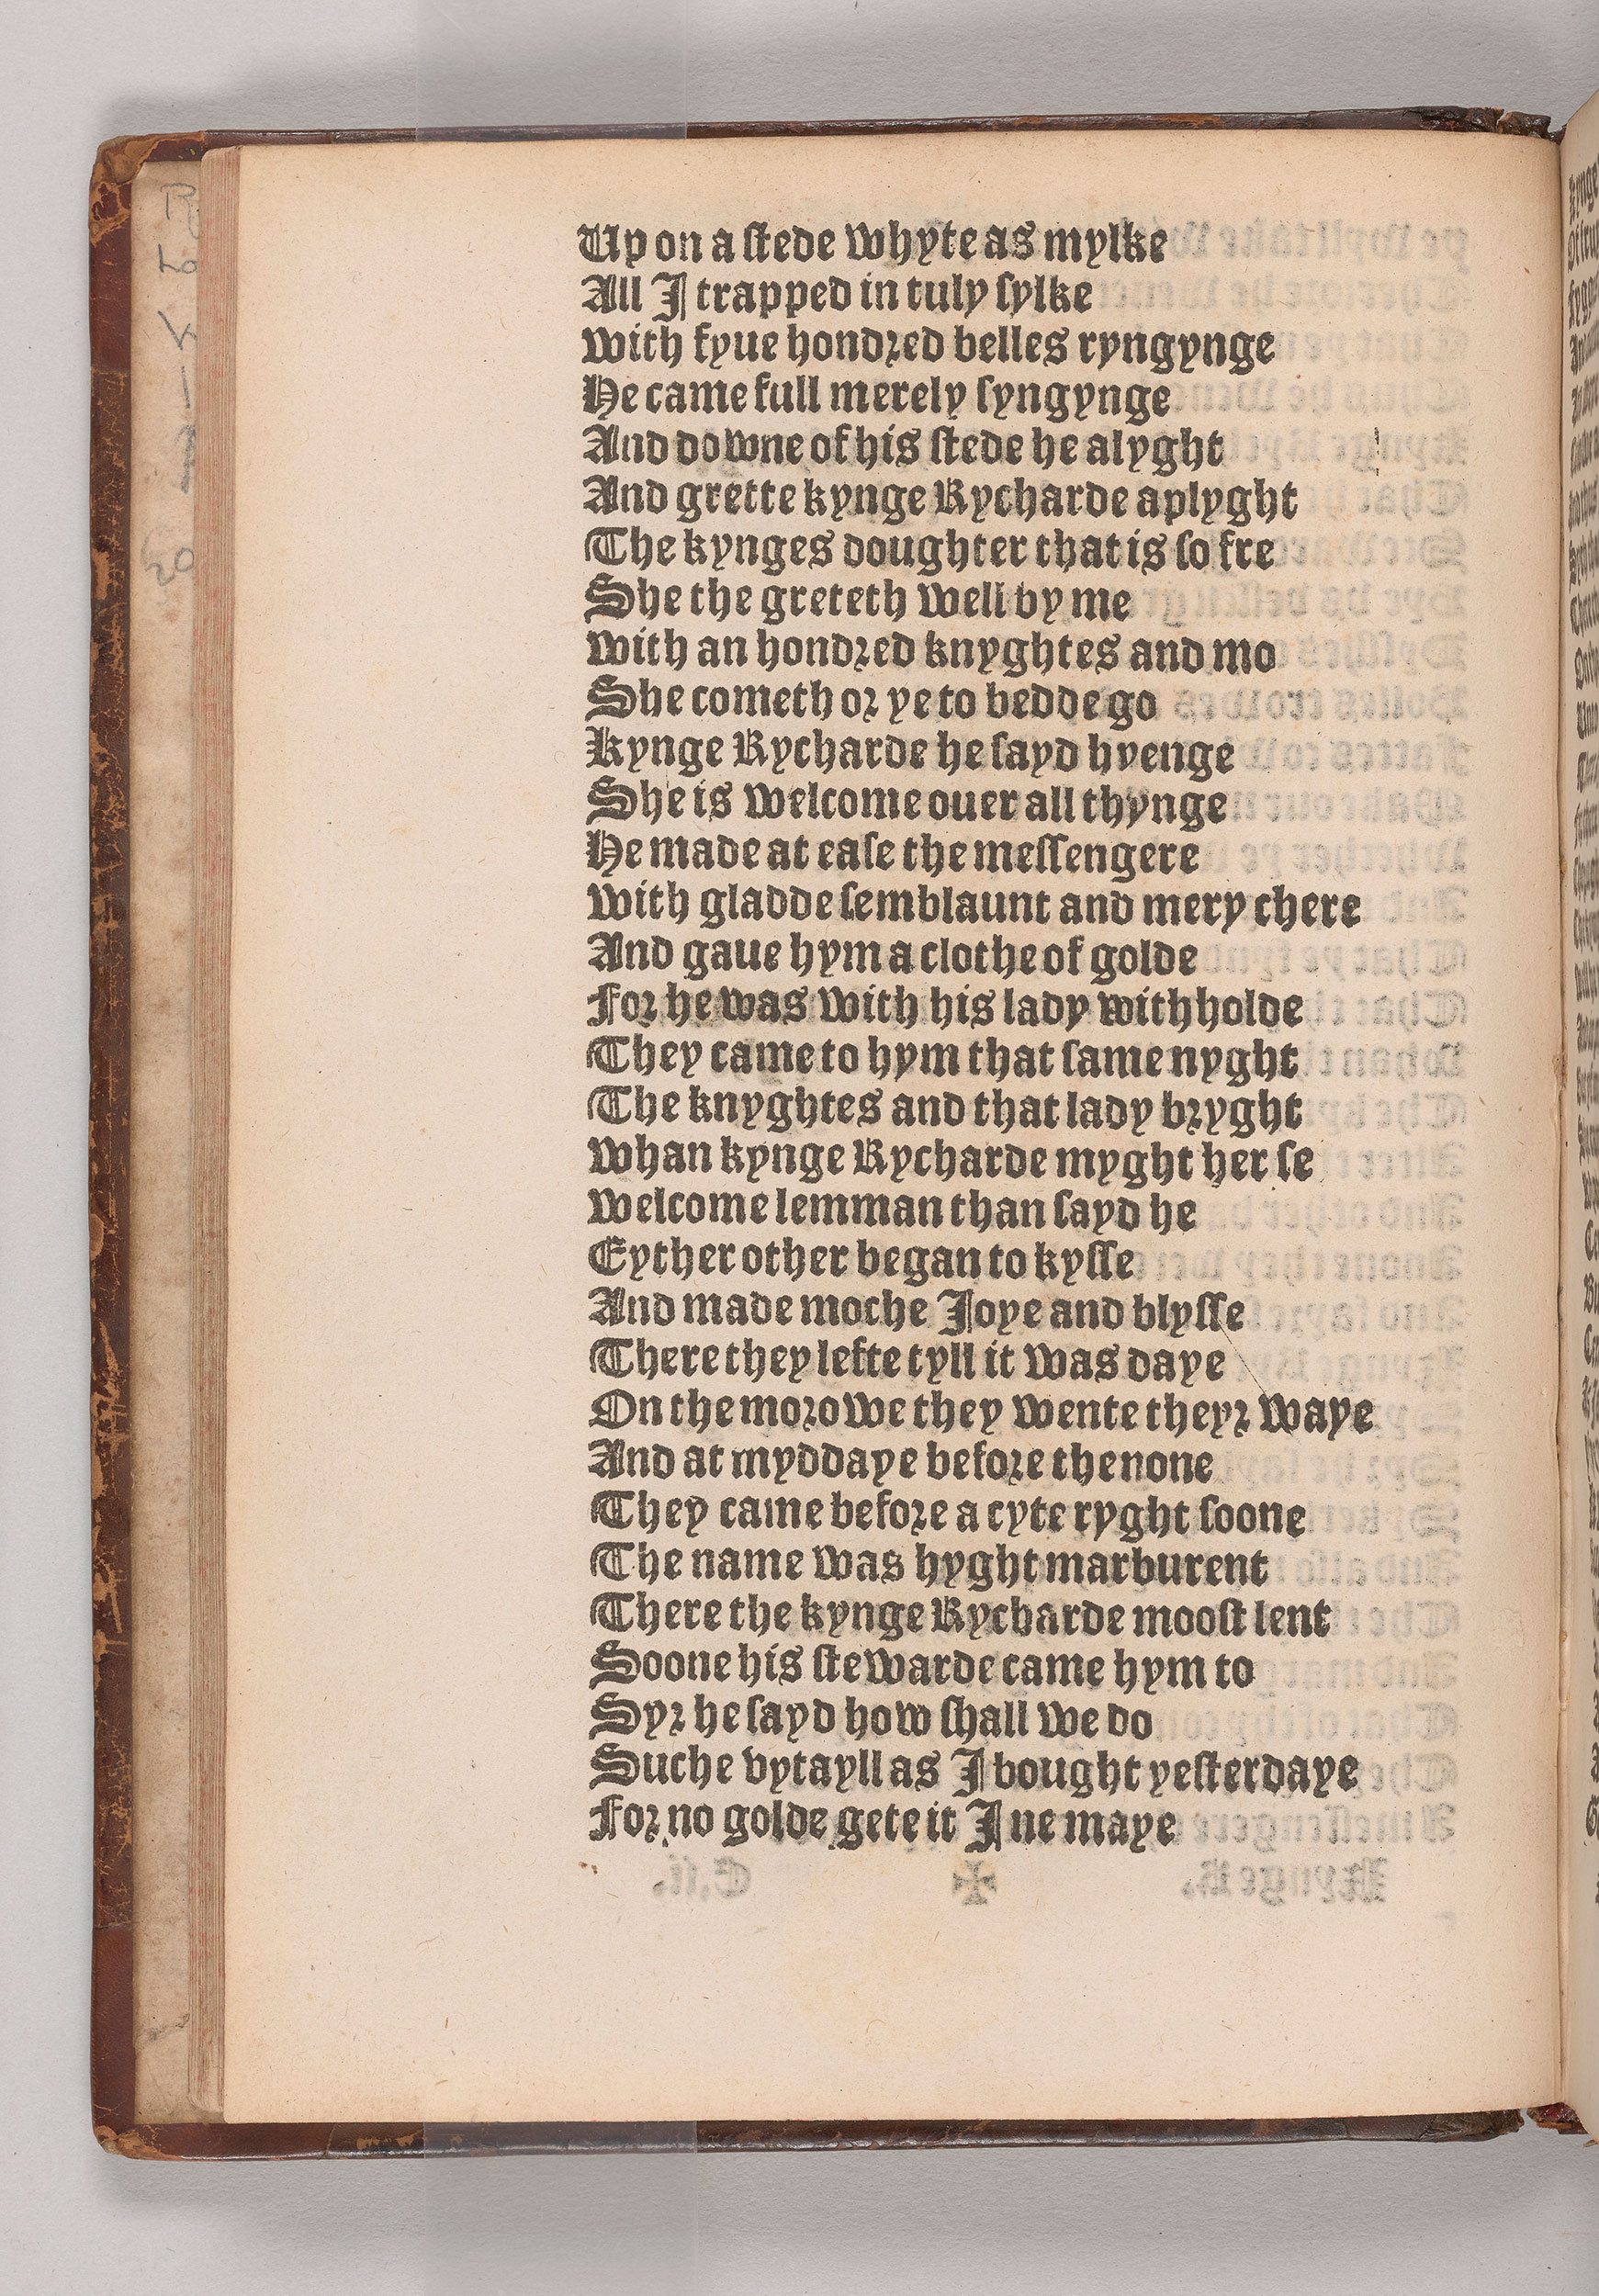 Up on a stede whyte as mylke
All I trapped in tuly sylke
with fyue hondred belles ryngynge
He came full merely syngynge
And downe of his stede he alyght
And grette kynge Rycharde aplyght
The kynges doughter that is so fre
She the greteth well by me
with an hondred knyghtes and mo
She cometh or ye to bedde go
Kynge Rycharde he sayd hyenge
She is welcome ouer all thynge
He made at ease the messengere
with gladde semblaunt and mery chere
And gaue hym a clothe of golde
For he was with his lady withholde
They came to hym that same nyght
The knyghtes and that lady bryght
whan kynge Rycharde myght her se
welcome lemman than sayd he
Eyther other began to kysse
And made moche Joye and blysse
There they lefte tyll it was daye
On the morowe they wente theyr waye
And at myddaye before the none
They came before a cyte ryght soone
The name was hyght marburent
There the kynge Rycharde moost lent
Soone his stewarde came hym to
Syr he sayd how shall we do
Suche vytayll as I bought yesterdaye
For no golde gete it I ne maye